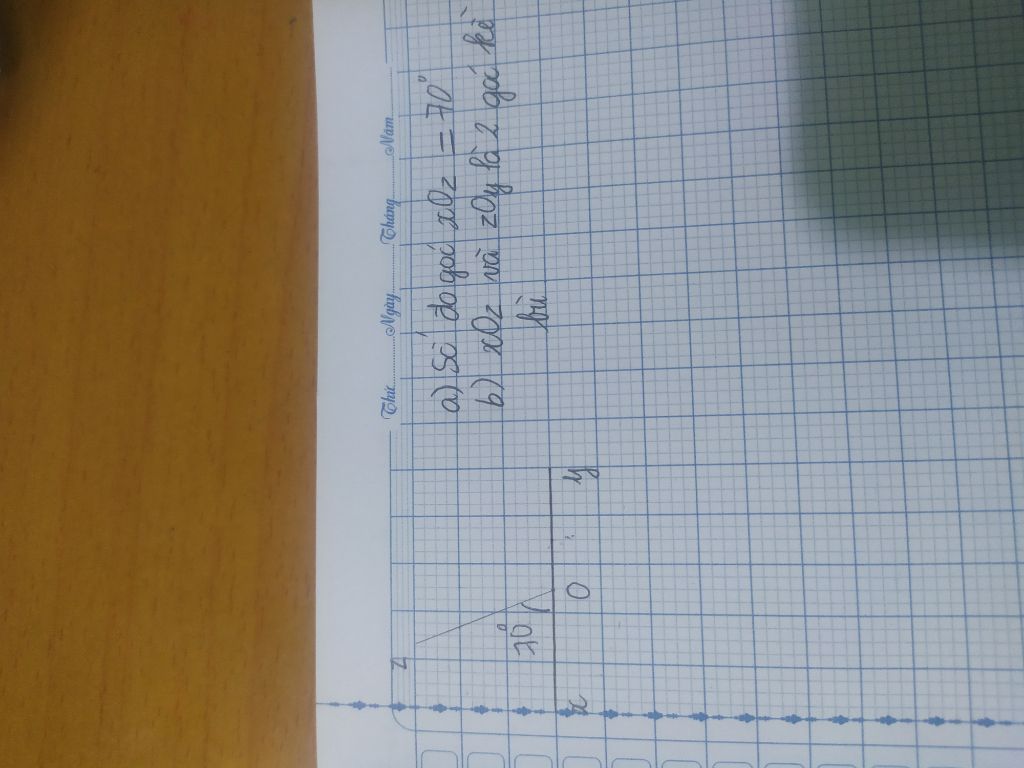 Thứ Ngày Tháng Năm
z
70°
x O y
a) Số đo góc xOz = 70°
b) xOz và zOy là 2 góc kề
bù